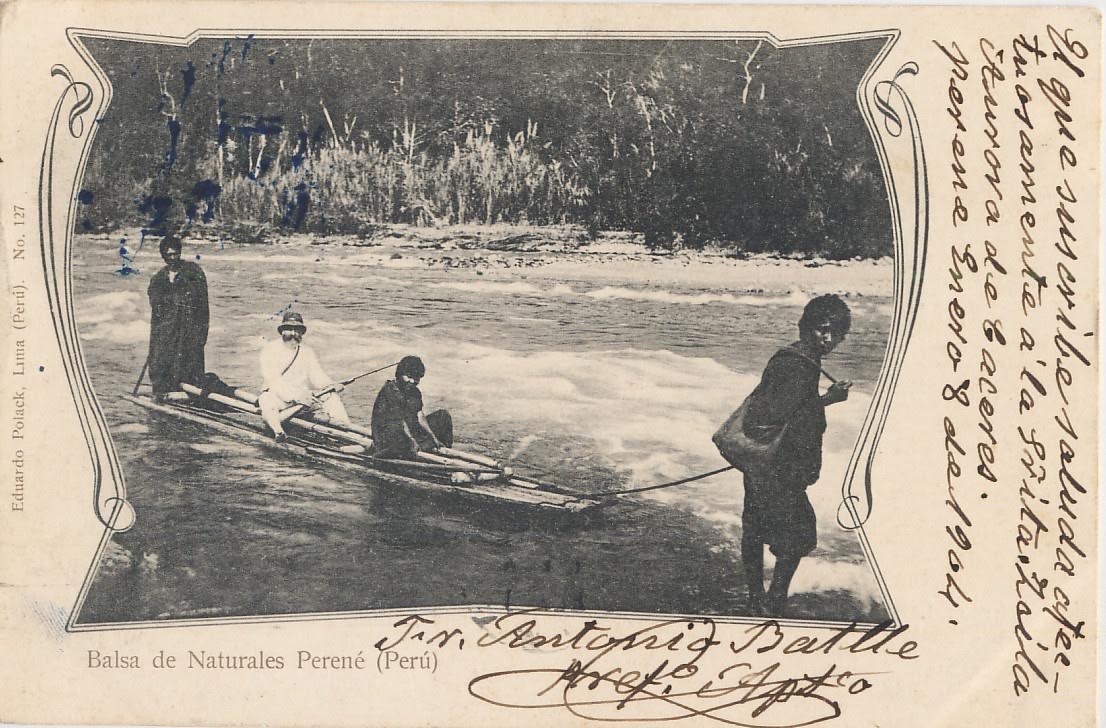 El que suscribe saluda afec-
tuosamente á la Srita, Zoila
Aurora de Caceres.
perene Enero 8 de 1904.
Eduardo Polack, Lima (Perú). No. 127
Balsa de Naturales Perené (Perú)
Fr. Antonio Batlle